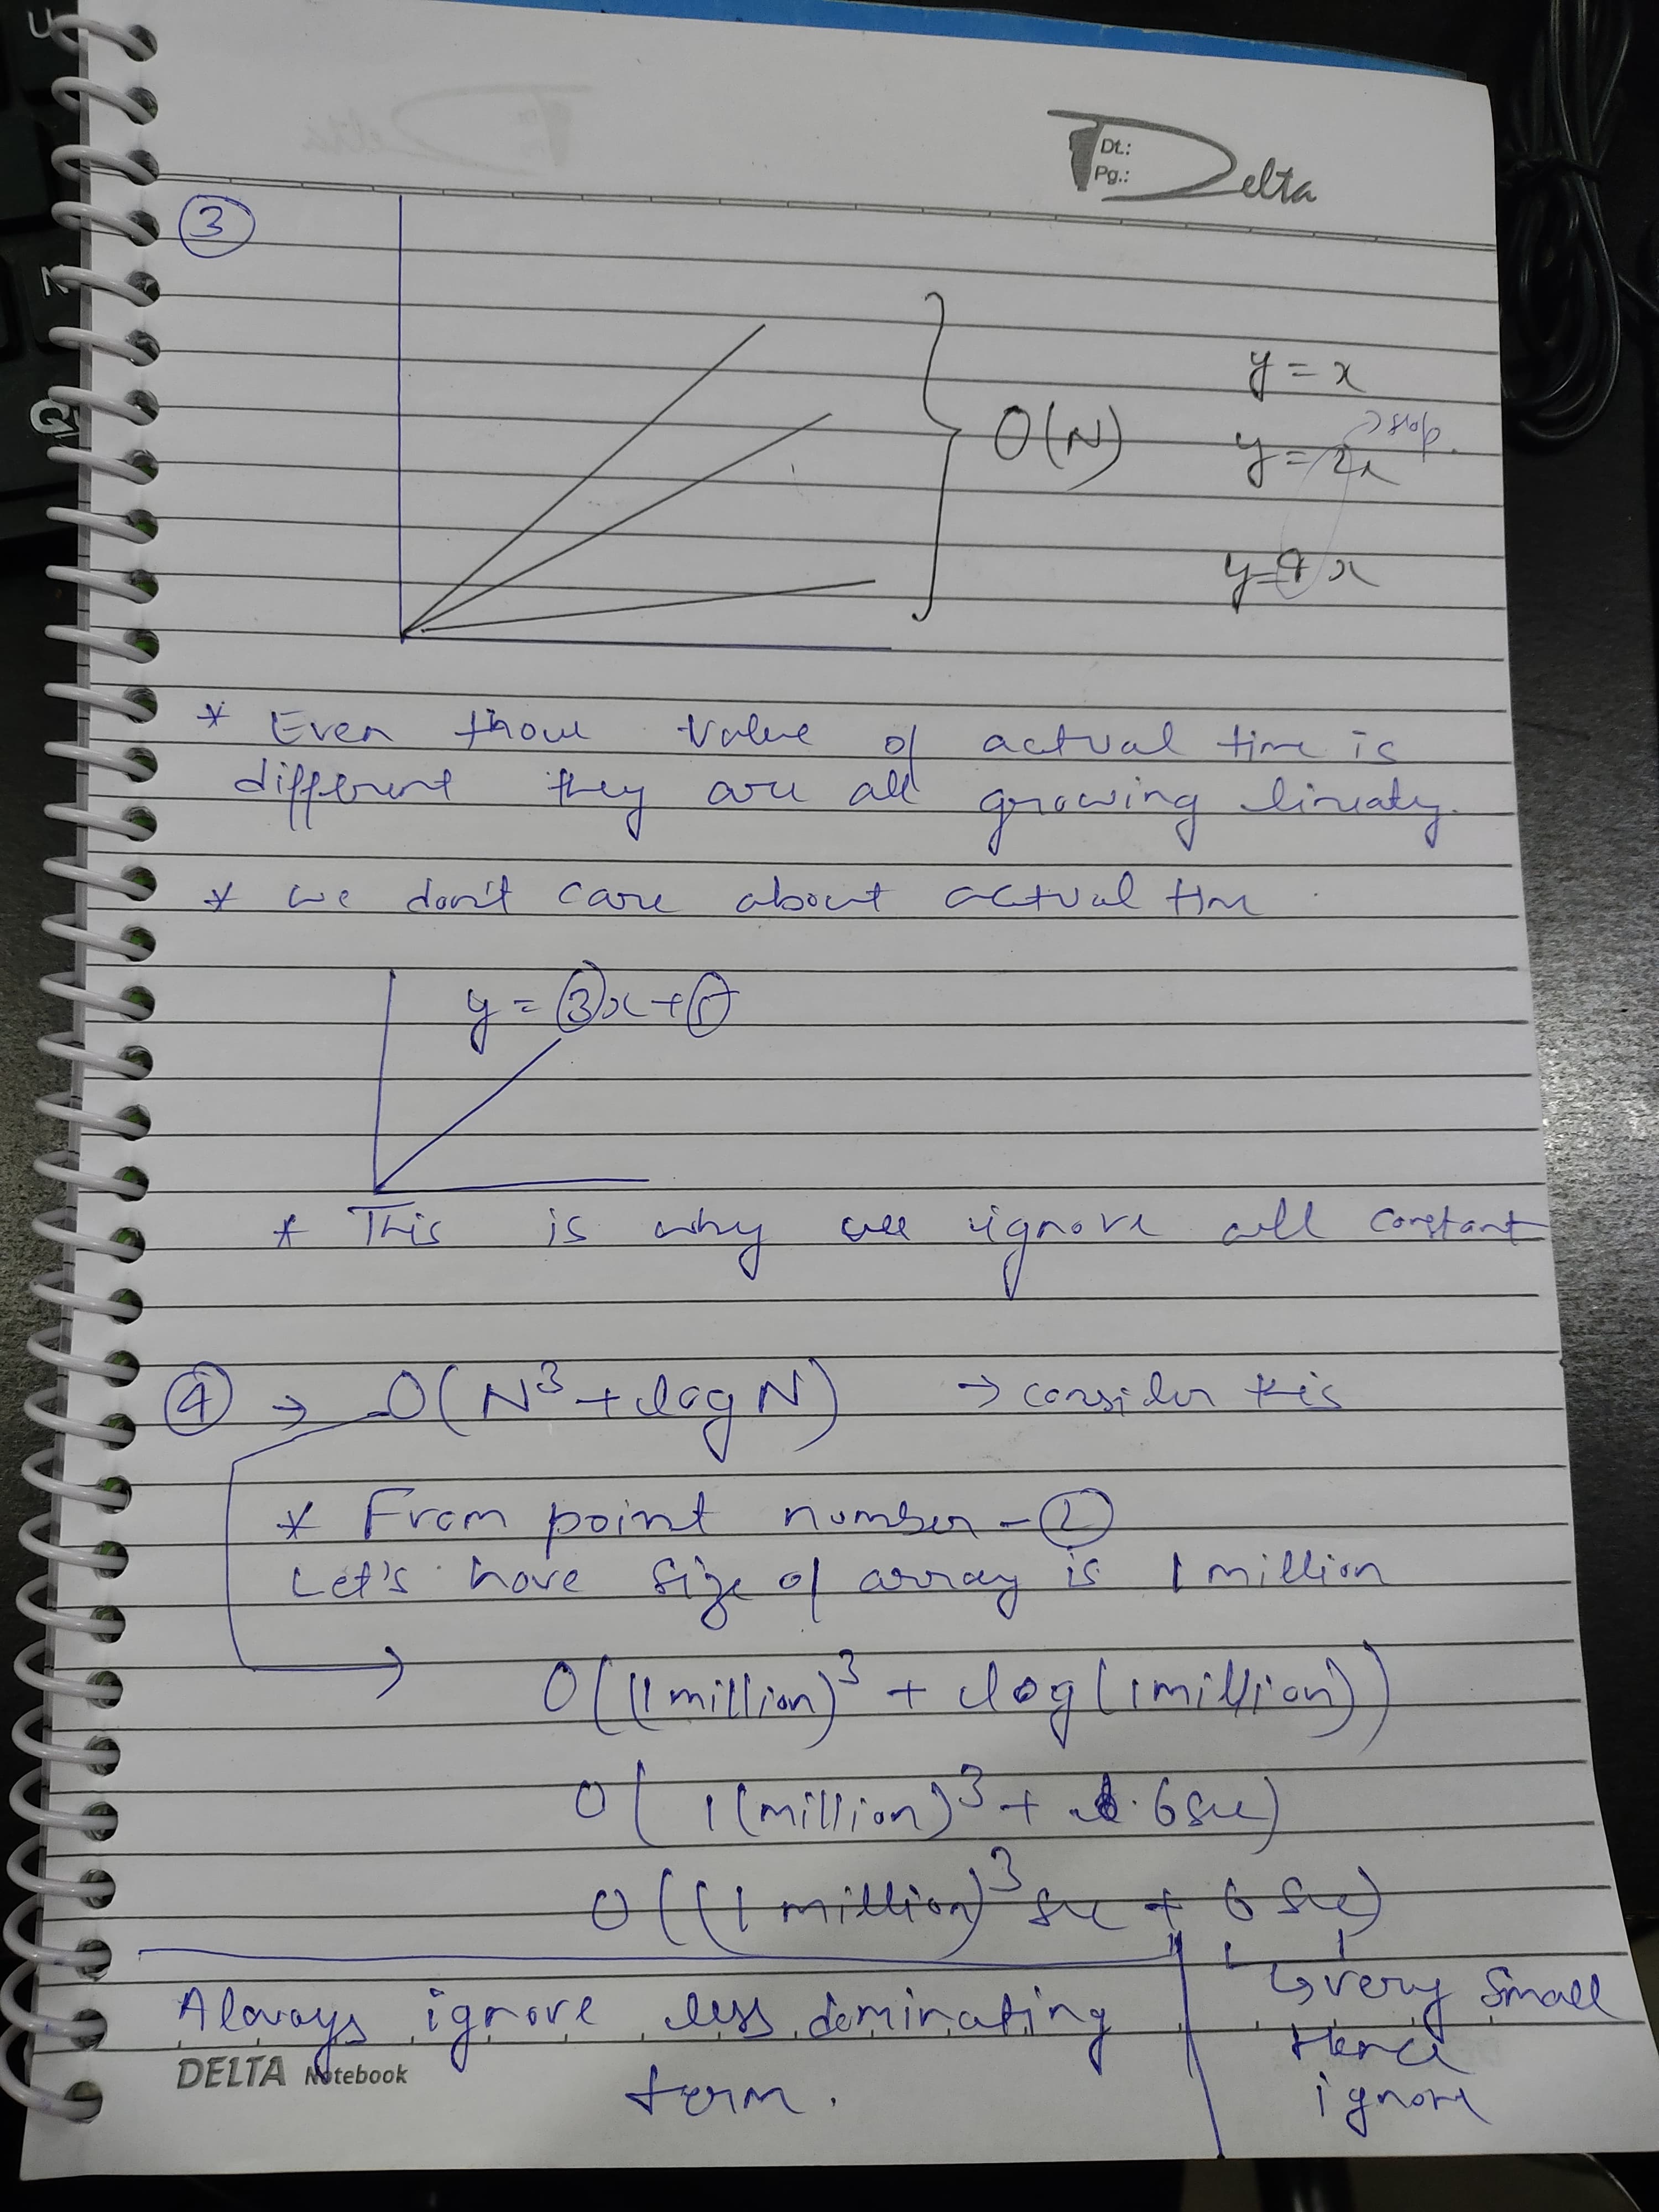 Dt.:
Pg.:
Delta
3
y = x
O(N)
y = 2x
slop.
y = 9x
* Even thou value of actual time is
different they are all growing linearly.
* we don't care about actual time
y = 3x +
* This is why we ignore all constant
4 → O(N³ + log N) → consider this
* From point number - 2
Let's have size of array is 1 million
O((1 million)³ + log(1 million))
O( 1(million)³ + 6 sec)
O((1 million)³ sec + 6 sec)
Always ignore less dominating
term.
↳ very small
Hence
ignore
DELTA Notebook